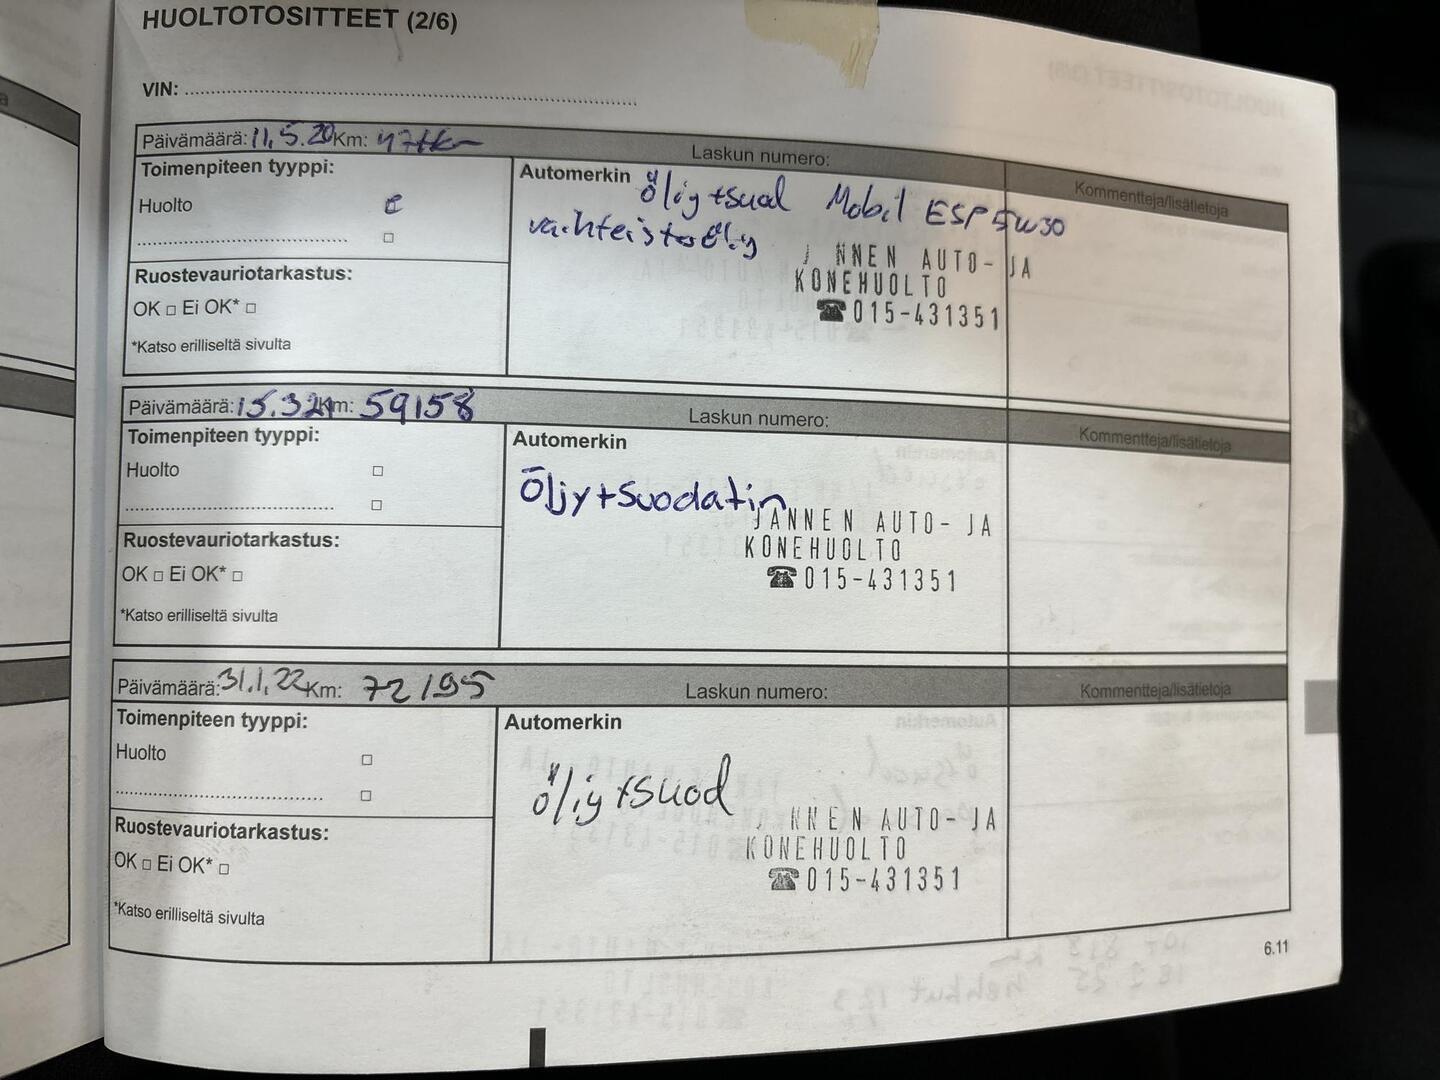 HUOLTOTOSITTEET (2/6)
VIN:
Päivämäärä: 11.5.20 Km: 47tkm
Laskun numero:
Kommentteja/lisätietoja
Toimenpiteen tyyppi:
Huolto
Ruostevauriotarkastus:
OK □ Ei OK* □
*Katso erilliseltä sivulta
Automerkin
Öljy+suod Mobil ESP 5W30
vaihteistoöljy
J NNEN AUTO- JA
KONEHUOLTO
☎015-431351
Päivämäärä: 15.3.21 Km: 59158
Laskun numero:
Kommentteja/lisätietoja
Toimenpiteen tyyppi:
Huolto □
□
Ruostevauriotarkastus:
OK □ Ei OK* □
*Katso erilliseltä sivulta
Automerkin
Öljy+suodatin
JANNEN AUTO- JA
KONEHUOLTO
☎015-431351
Päivämäärä: 31.1.22 Km: 72195
Laskun numero:
Kommentteja/lisätietoja
Toimenpiteen tyyppi:
Huolto □
□
Ruostevauriotarkastus:
OK □ Ei OK* □
*Katso erilliseltä sivulta
Automerkin
öljy+suod
NNEN AUTO-JA
KONEHUOLTO
☎015-431351
6.11